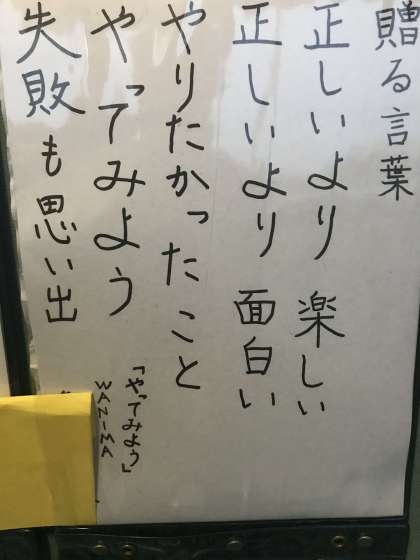 贈る言葉
正しいより 楽しい
正しいより 面白い
やりたかったこと
やってみよう
失敗も思い出
「やってみよう」
WANIMA